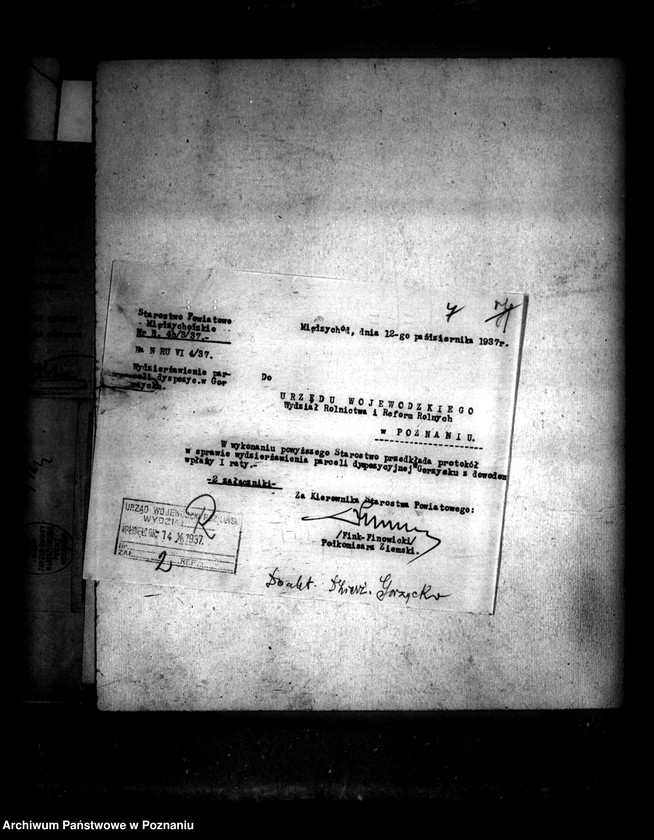 7
Starostwo Powiatowe
- Międzychodzkie -
Nr R. 4b/3/37.-
Międzychód, dnia 12-go października 1937r.
Na N RU VI 4/37.
Wydzierżawienie par-
celi dyspozyc.w Gor
zycku.
Do
URZĘDU WOJEWODZKIEGO
Wydział Rolnictwa i Reform Rolnych
w POZNANIU.
W wykonaniu powyższego Starostwo przedkłada protokół
w sprawie wydzierżawienia parceli dyspozycyjnej Gorzycku z dowodem
wpłaty I raty.-
-2 załączniki-
Za Kierownika Starostwa Powiatowego:
/Fink-Finowicki/
Podkomisarz Ziemski.
URZĄD WOJEWÓDZKI POZNAŃSKI
WYDZIAŁ R
14.X.1937.
ZAŁ. 2 REF.
Do akt. Dzierż. Gorzycko
Archiwum Państwowe w Poznaniu